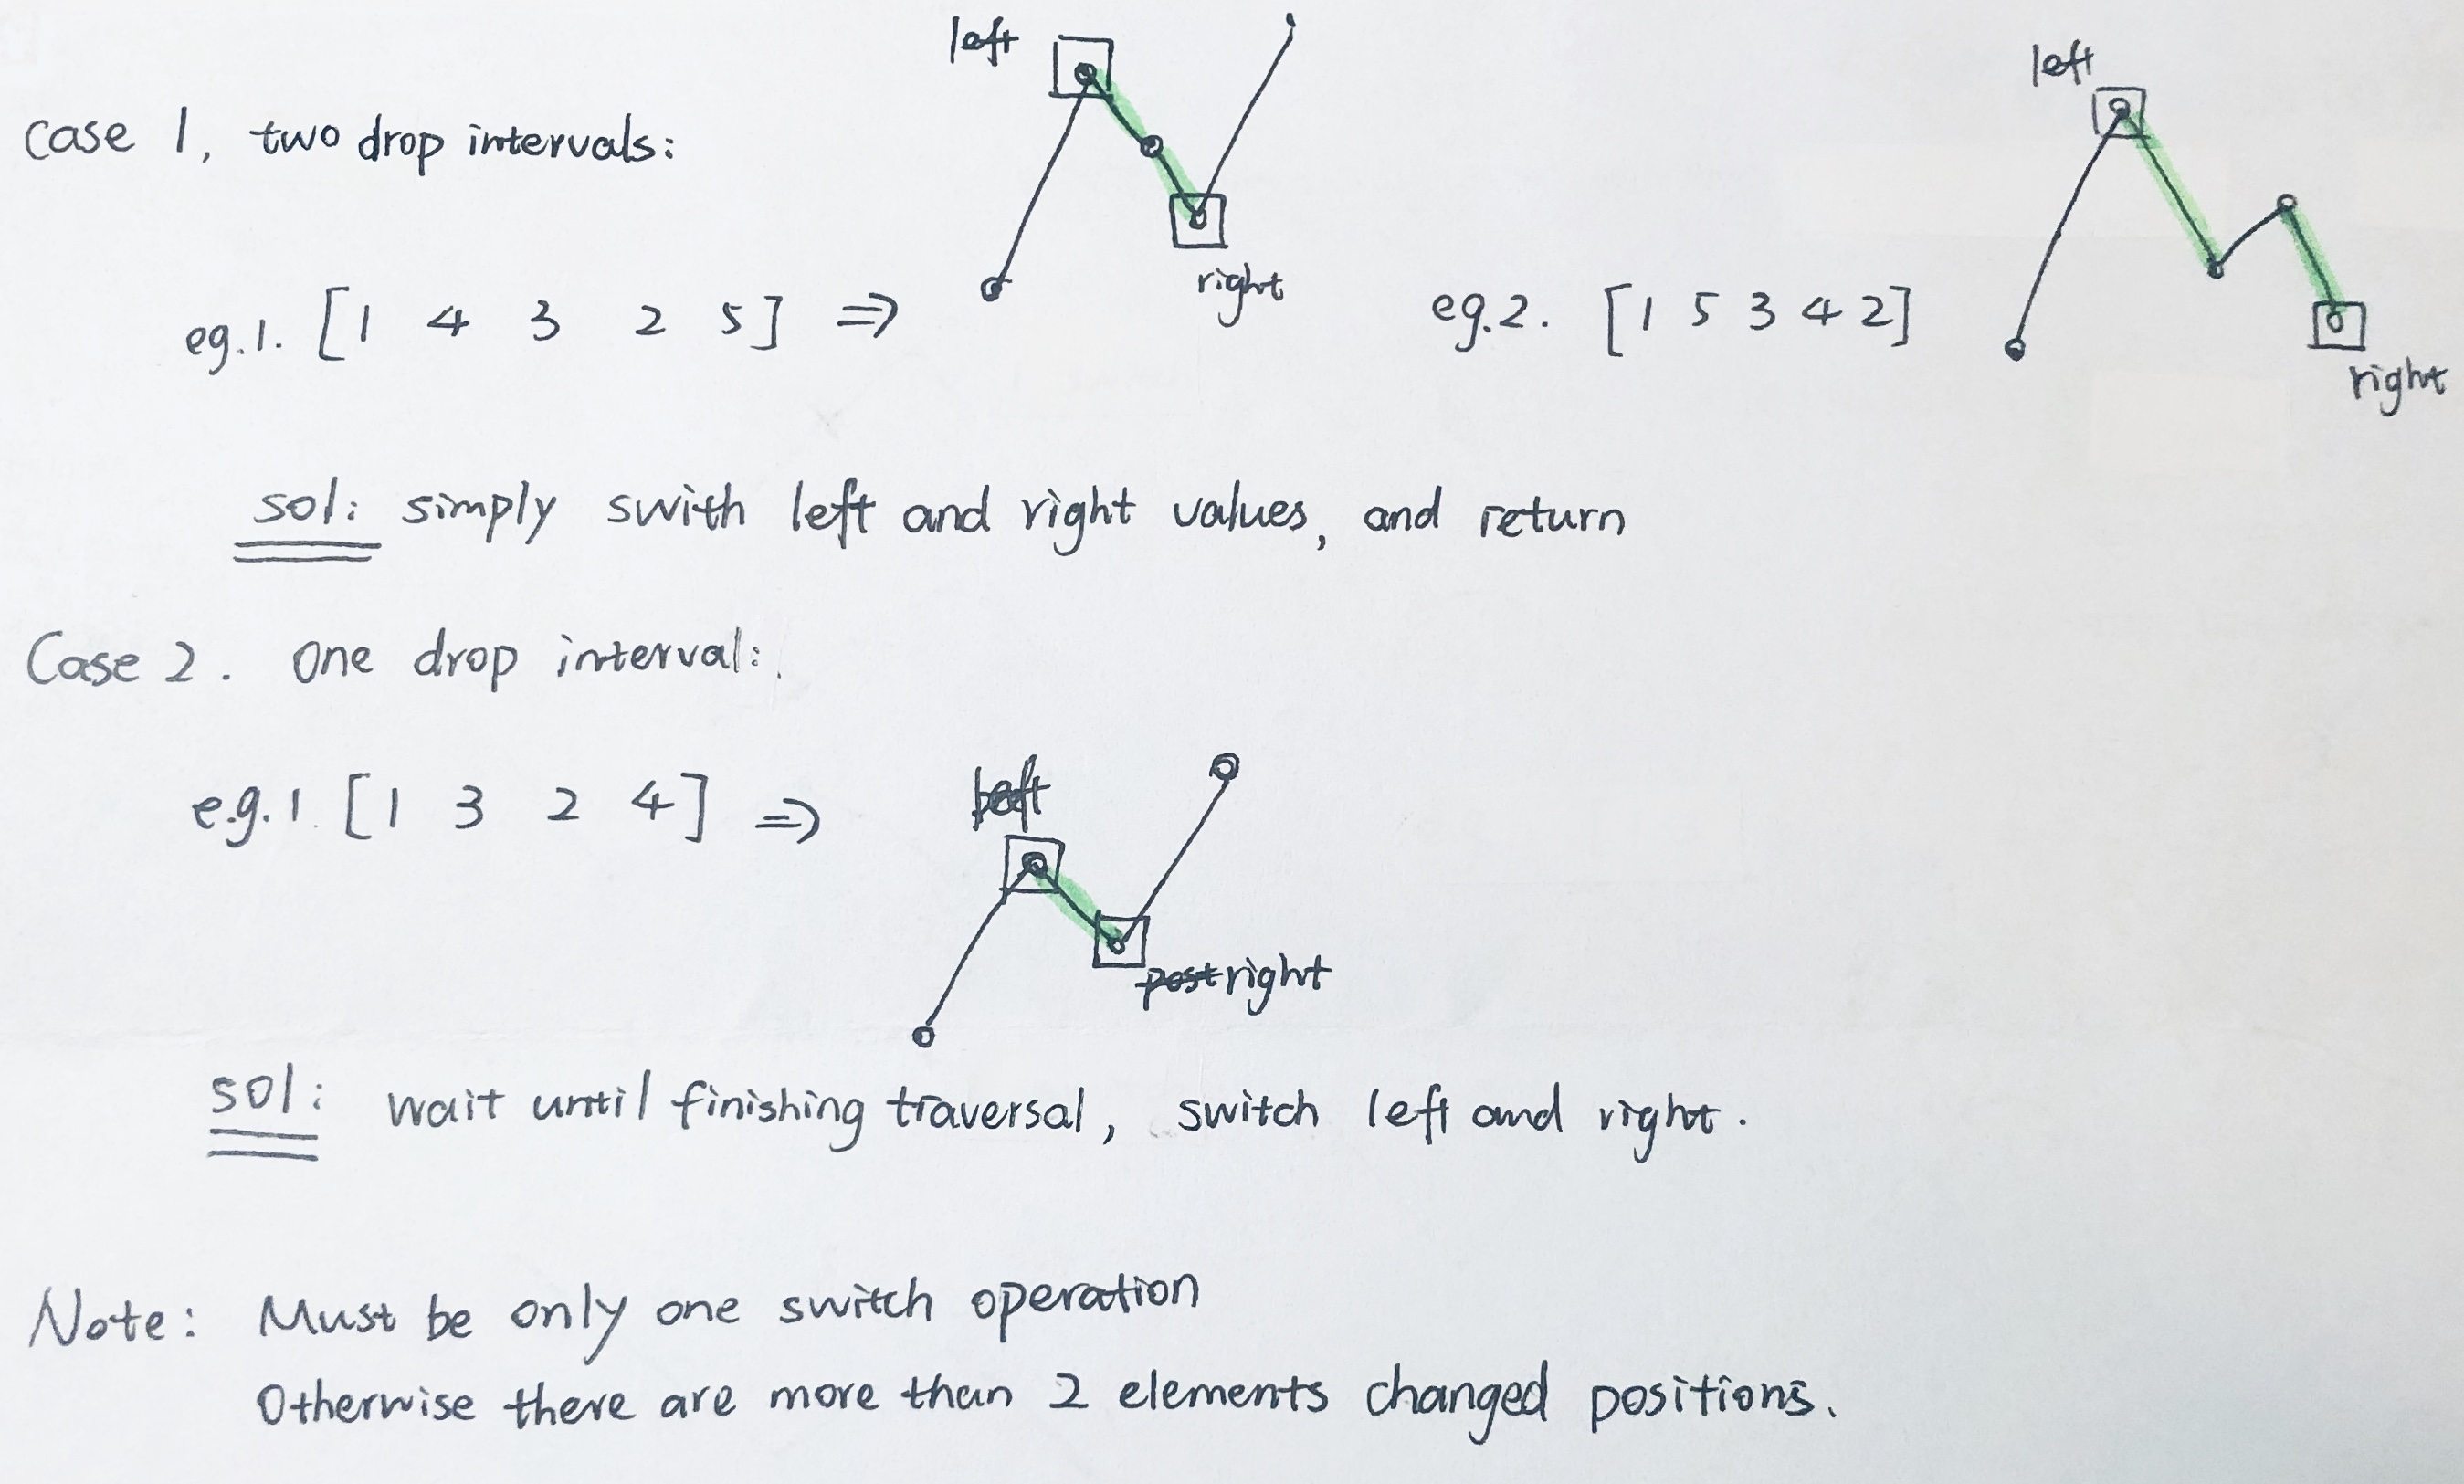 left
left
case 1, two drop intervals:
right
eg.1. [1 4 3 2 5] ⇒
eg.2. [1 5 3 4 2]
right
sol: simply swith left and right values, and return
Case 2. One drop interval:
left
e.g.1. [1 3 2 4] ⇒
post right
sol: wait until finishing traversal, switch left and right.
Note: Must be only one switch operation
Otherwise there are more than 2 elements changed positions.